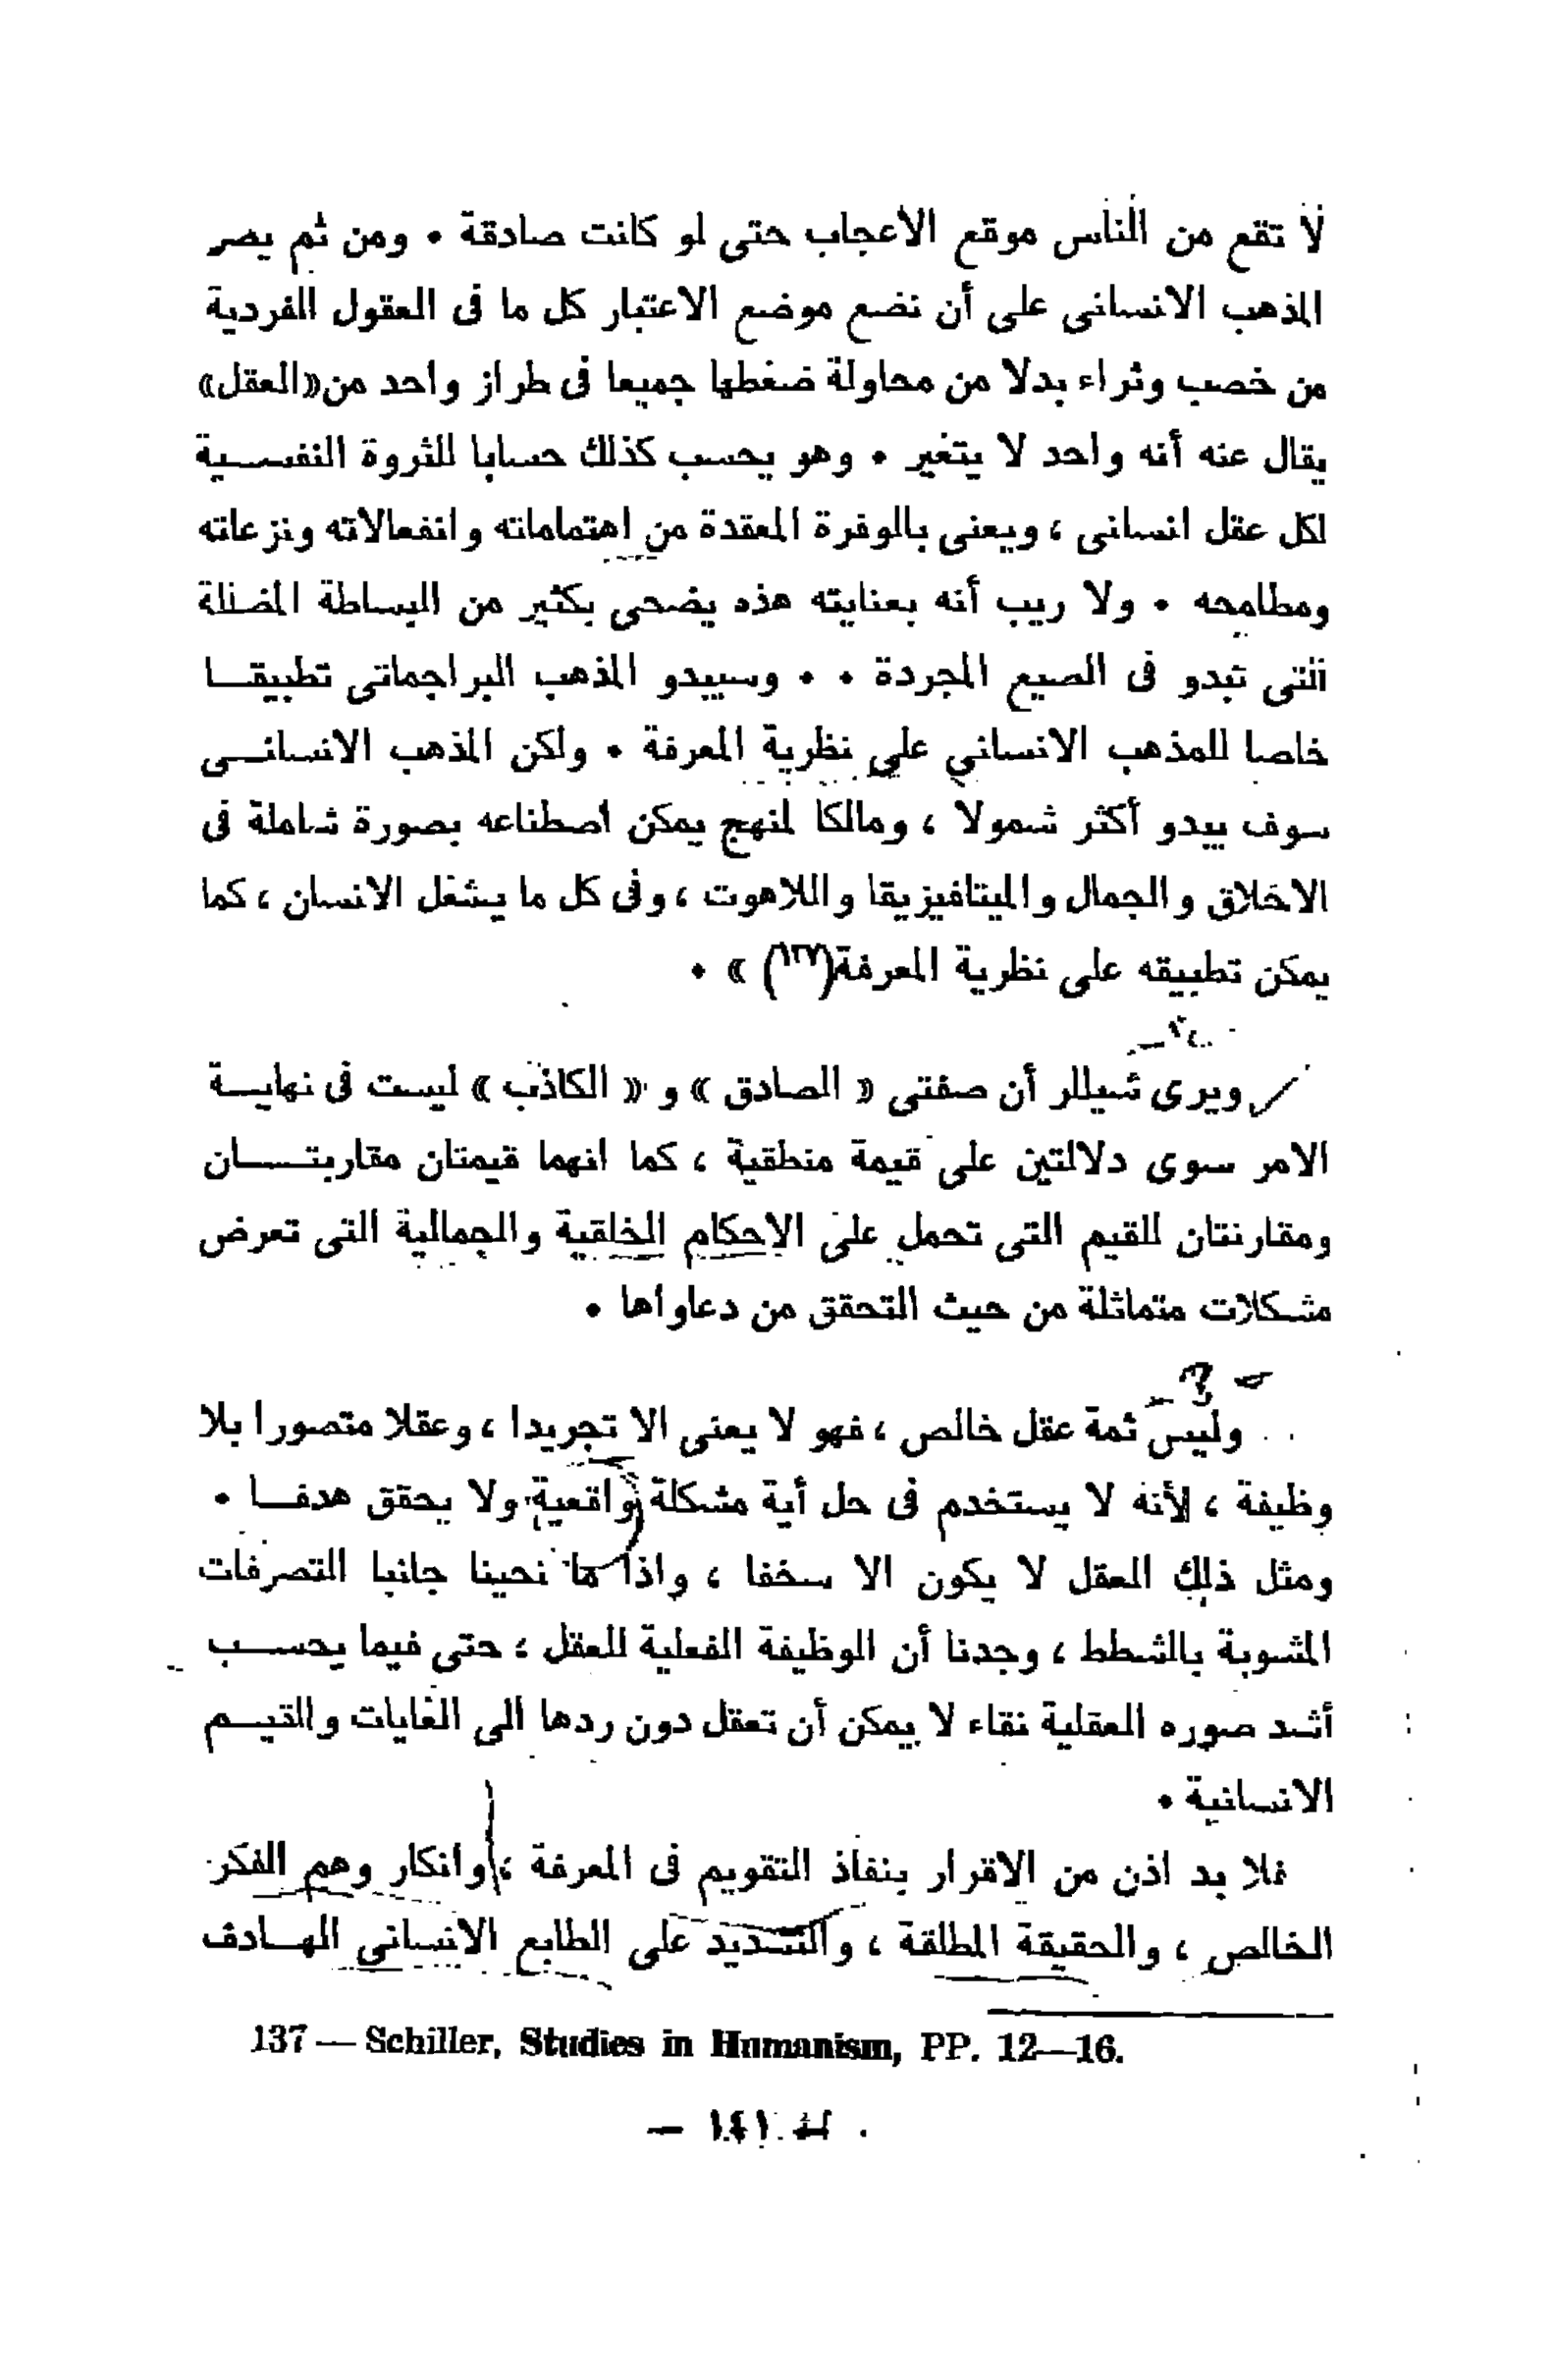 لا تقع من الناس موقع الاعجاب حتى لو كانت صادقة • ومن ثم يصر
المذهب الانسانى على أن نضع موضع الاعتبار كل ما فى العقول الفردية
من خصب وثراء بدلا من محاولة ضغطها جميعا فى طراز واحد من «العقل»
يقال عنه أنه واحد لا يتغير • وهو يحسب كذلك حسابا للثروة النفســـية
لكل عقل انسانى ، ويعنى بالوفرة المعقدة من اهتماماته وانفعالاته ونزعاته
ومطامحه • ولا ريب أنه بعنايته هذه يضحى بكثير من البساطة المضللة
التى تبدو فى الصيع المجردة • • وسيبدو المذهب البراجماتى تطبيقـــا
خاصا للمذهب الانسانى على نظرية المعرفة • ولكن المذهب الانسانـــى
سوف يبدو أكثر شمولا ، ومالكا لمنهج يمكن اصطناعه بصورة شاملة فى
الاخلاق والجمال والميتافيزيقا واللاهوت ، وفى كل ما يشغل الانسان ، كما
يمكن تطبيقه على نظرية المعرفة(١٣٧) » •
ويرى شيللر أن صفتى « الصادق » و « الكاذب » ليست فى نهايـــة
الامر سوى دلالتين على قيمة منطقية ، كما انهما قيمتان مقاربتـــــان
ومقارنتان للقيم التى تحمل على الاحكام الخلقية والجمالية التى تعرض
مشكلات متماثلة من حيث التحقق من دعاواها •
٣ –
وليس ثمة عقل خالص ، فهو لا يعنى الا تجريدا ، وعقلا متصورا بلا
وظيفة ، لأنه لا يستخدم فى حل أية مشكلة واقعية ولا يحقق هدفـــا •
ومثل ذلك العقل لا يكون الا سخفا ، واذا ما نحينا جانبا التصرفات
المشوبة بالشطط ، وجدنا أن الوظيفة الفعلية للعقل ، حتى فيما يحســـب
أشد صوره العقلية نقاء لا يمكن أن تعقل دون ردها الى الغايات والقيـــم
الانسانية •
فلا بد اذن من الاقرار بنفاذ التقويم فى المعرفة ، وانكار وهم الفكر
الخالص ، والحقيقة المطلقة ، والتشديد على الطابع الانسانى الهـــادف
137 — Schiller, Studies in Humanism, PP. 12—16.
— ١٤١ —